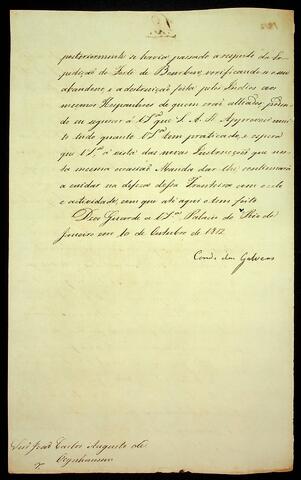 posteriormente se havia passado a respeito da Ex-
pedição do Forte de Bourbon, verificando-se o seu
abandono e a destruição feita pelos Indios aos
mesmos Hespanhoes de quem erão alliados, poden-
do eu segurar a VSª que S. A. R. Approvou mui-
to tudo quanto VSª tem praticado, e espera
que VSª á vista das novas Instrucções que nes-
ta mesma occasião Manda dar-lhe continuará
a cuidar na defeza dessa Fronteira com o zelo
e actividade, com que até aqui o tem feito.
Deos Guarde a VSª Palacio do Rio de
Janeiro em 10 de Outubro de 1812.
Conde das Galveas
Senr João Carlos Augusto de
Oeynhausen